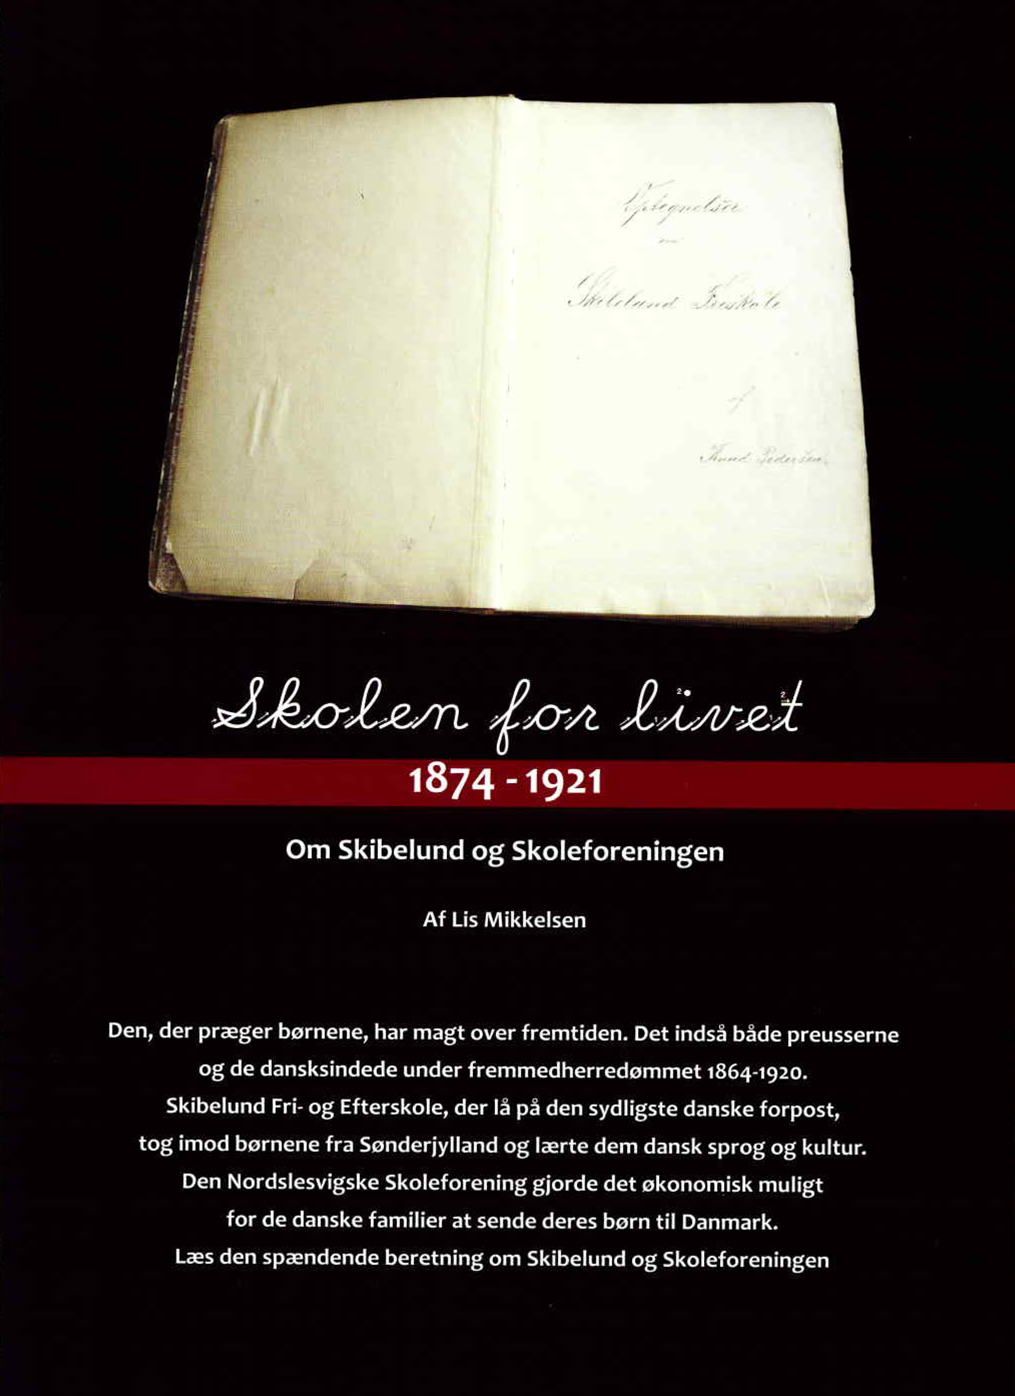 Optegnelser
om
Skibelund Friskole
af
Knud Pedersen.
Skolen for livet
1874 - 1921
Om Skibelund og Skoleforeningen
Af Lis Mikkelsen
Den, der præger børnene, har magt over fremtiden. Det indså både preusserne
og de dansksindede under fremmedherredømmet 1864-1920.
Skibelund Fri- og Efterskole, der lå på den sydligste danske forpost,
tog imod børnene fra Sønderjylland og lærte dem dansk sprog og kultur.
Den Nordslesvigske Skoleforening gjorde det økonomisk muligt
for de danske familier at sende deres børn til Danmark.
Læs den spændende beretning om Skibelund og Skoleforeningen